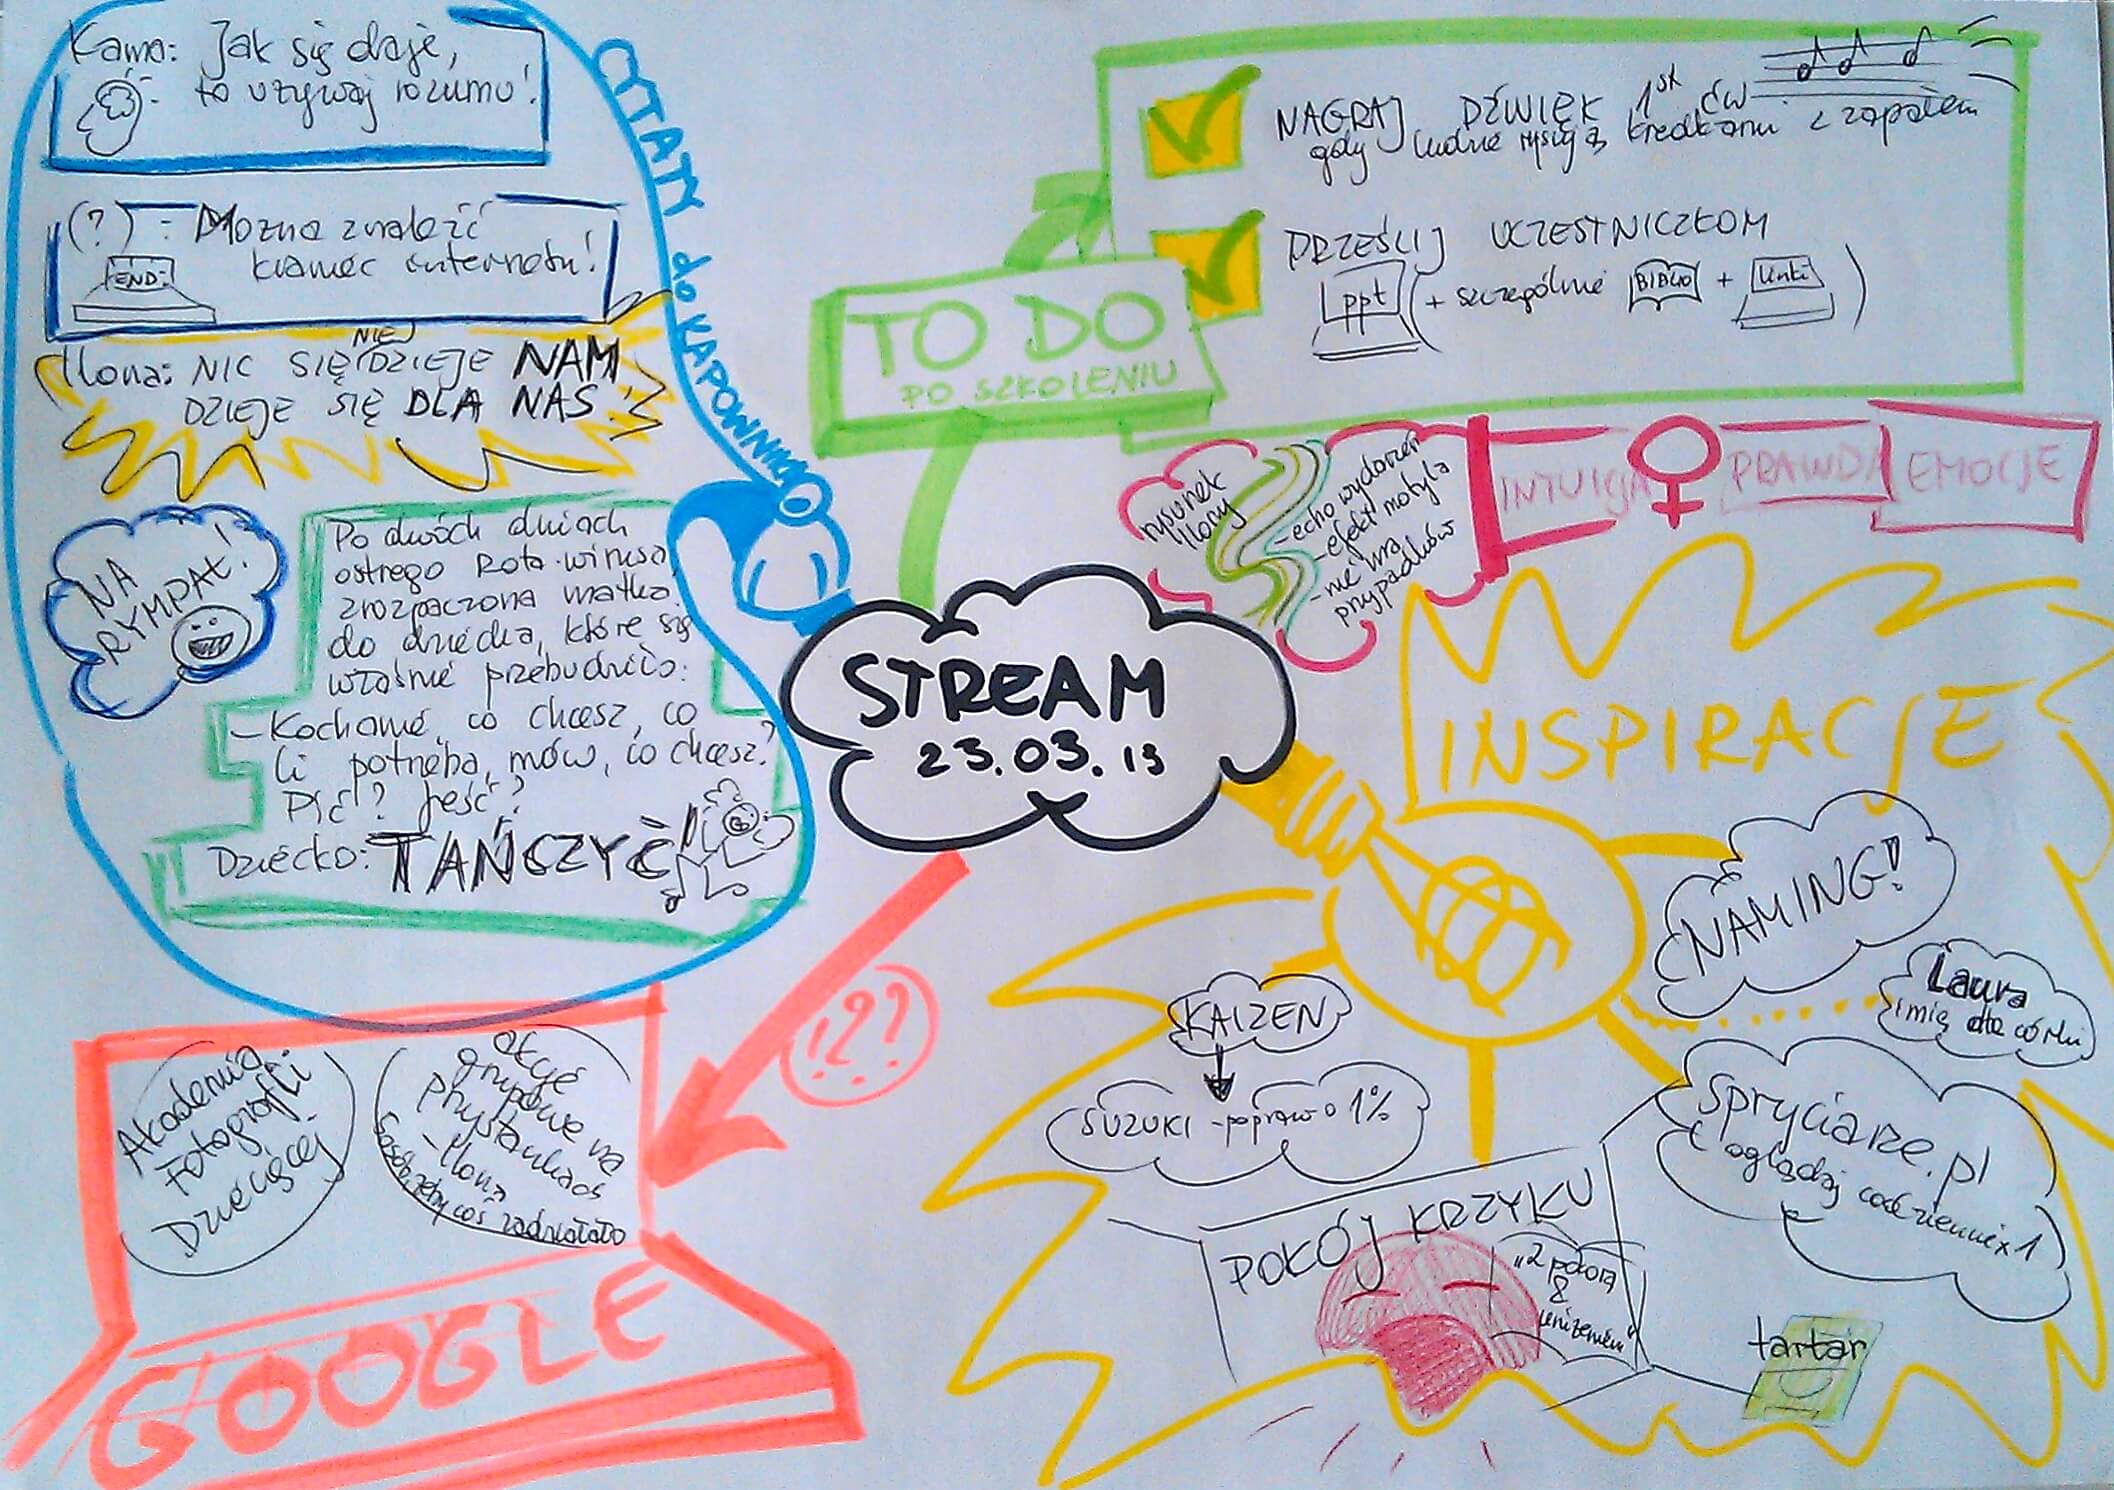 Kama: Jak się daje,
to używaj rozumu!
(?) - Można znaleźć
kraniec internetu!
END
Ilona: NIC SIĘ NIE DZIEJE NAM
DZIEJE SIĘ DLA NAS!
CYTATY do KAPOWNIKA
NA
RYMPAŁ!
Po dwóch dniach
ostrego Rota-wirusa,
zrozpaczona matka
do dziecka, które się
właśnie przebudziło:
- Kochanie, co chcesz, co
Ci potrzeba, mów, co chcesz?
Pić? Jeść?
Dziecko: TAŃCZYĆ
TO DO
PO SZKOLENIU
NAGRAJ DŹWIĘK 1st ćw
gdy ludzie rysują kredkami z zapałem
PRZEŚLIJ UCZESTNICZKOM
ppt (+ szczególnie BIBLIO + linki)
rysunek
Ilony
- echo wydarzeń
- efekt motyla
- nie ma
przypadków
INTUICJA PRAWDA EMOCJE
STREAM
23.03.13
INSPIRACJE
NAMING!
Laura
imię dla córki
KAIZEN
SUZUKI - popraw o 1%
Spryciarze.pl
oglądaj codziennie x 1
POKÓJ KRZYKU
"z pokorą
&
uniżeniem"
tartar
???
Akademia
Fotografii
Dziecięcej
grupowe na
- Ilona
żeby coś zadziałało
GOOGLE